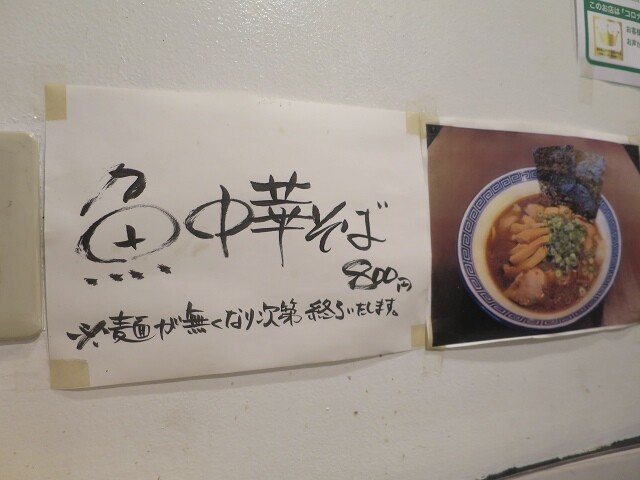 魚中華そば
800円
※麺が無くなり次第終了いたします。
このお店は「コロナ
お客様